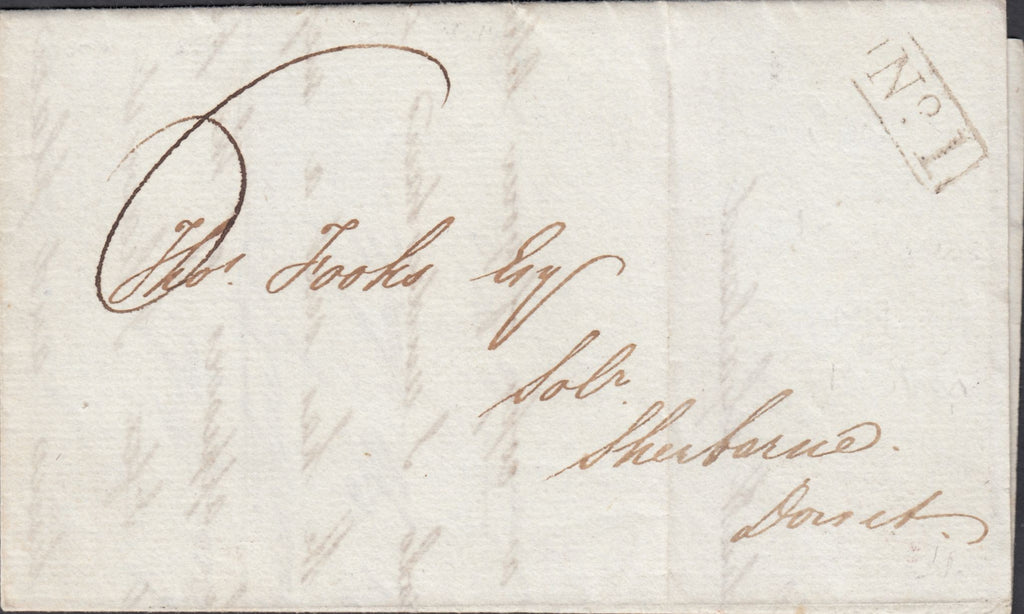 No. 1
6
Thos. Fooks Esq
Solr.
Sherborne.
Dorset.